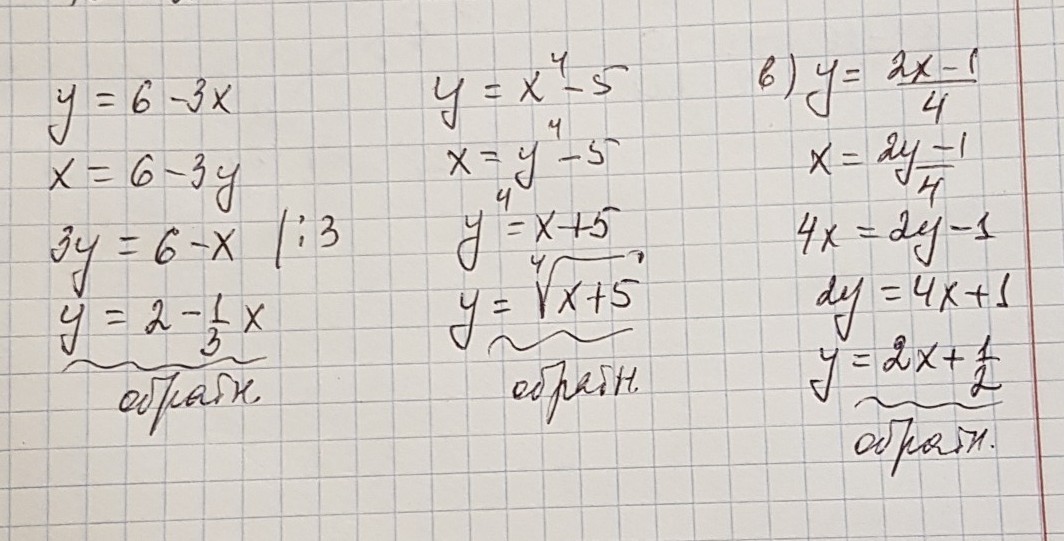 y = 6 - 3x
x = 6 - 3y
3y = 6 - x | : 3
y = 2 - 1/3 x
обратн.
y = x⁴ - 5
x = y⁴ - 5
y⁴ = x + 5
y = ⁴√(x + 5)
обратн.
в) y = (2x - 1)/4
x = (2y - 1)/4
4x = 2y - 1
2y = 4x + 1
y = 2x + 1/2
обратн.